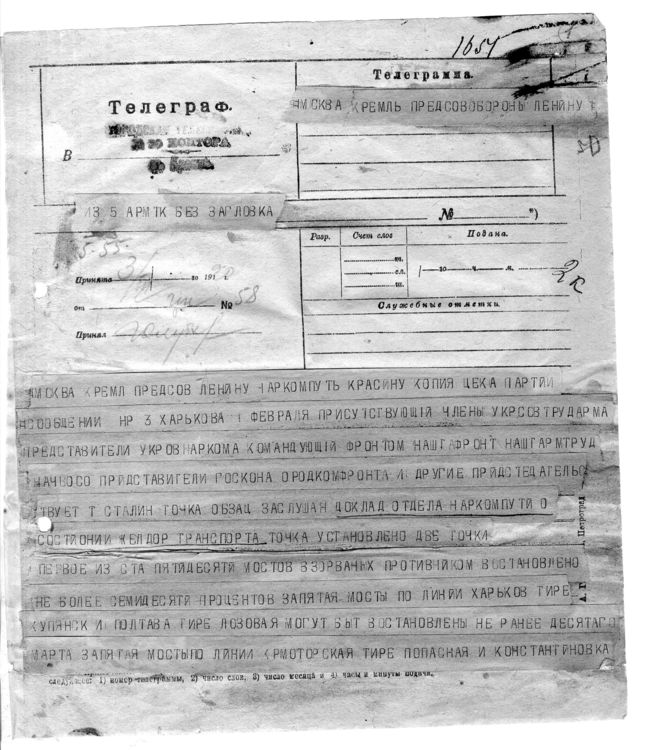 1651
Телеграф.
Телеграмма.
МОСКВА КРЕМЛЬ ПРЕДСОВОБОРОНЫ ЛЕНИНУ
КОНТОРА
В
ИЗ 5 АРМТК БЕЗ ЗАГЛОВКА
№ *)
5-55
Разр. Счет слов Подана.
Принята го 191 г.
т. го ч. м.
сл.
2к
от № 58
Служебные отметки.
Принял
МОСКВА КРЕМЛ ПРЕДСОВ ЛЕНИНУ НАРКОМПУТЬ КРАСИНУ КОПИЯ ЦЕКА ПАРТИИ
СООБЩЕНИИ НР 3 ХАРЬКОВА 1 ФЕВРАЛЯ ПРИСУТСТВУЮЩІЙ ЧЛЕНЫ УКРСОВТРУДАРМА
ПРЕДСТАВИТЕЛИ УКРОВНАРКОМА КОМАНДУЮЩІЙ ФРОНТОМ НАШГАФРОНТ НАШГАРМТРУД
НАЧВОСО ПРИДСТАВИТЕЛИ ГОСКОНА ОРОДКОМФРОНТА И ДРУГИЕ ПРИДСТЕДАТЕЛЬС
ТВУЕТ Т СТАЛИН ТОЧКА ОБЗАЦ ЗАСЛУШАН ДОКЛАД ОТДЕЛА НАРКОМПУТИ О
СОСТЙОНИИ ЖЕЛДОР ТРАНСПОРТА ТОЧКА УСТАНОВЛЕНО ДВЕ ТОЧКИ
А. Г. Петроград
ПЕРВОЕ ИЗ СТА ПЯТИДЕСЯТИ МОСТОВ ВЗОРВАНЫХ ПРОТИВНИКОМ ВОСТАНОВЛЕНО
НЕ БОЛЕЕ СЕМИДЕСЯТИ ПРОЦЕНТОВ ЗАПЯТАЯ МОСТЫ ПО ЛИНИИ ХАРЬКОВ ТИРЕ
КУПЯНСК И ПОЛТАВА ТИРЕ ЛОЗОВАЯ МОГУТ БЫТ ВОСТАНОВЛЕНЫ НЕ РАНЕЕ ДЕСЯТАГО
МАРТА ЗАПЯТАЯ МОСТЫПО ЛИНИИ КРМОТОРСКАЯ ТИРЕ ПОПАСНАЯ И КОНСТАНТИНОВКА
следующее: 1) номер телеграммы, 2) число слов, 3) число месяца и 4) часы и минуты подачи.